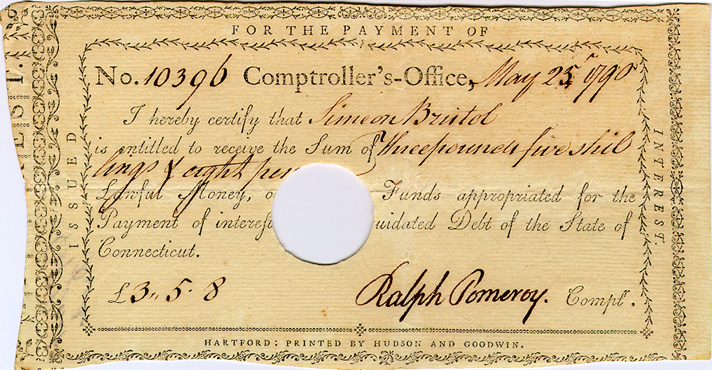 FOR THE PAYMENT OF
No. 10396 Comptroller's-Office, May 25th 1790
I hereby certify that Simeon Bristol
is entitled to receive the Sum of Three pounds five shil
lings & eight pen
Lawful Money, o Funds appropriated for the
Payment of interest uidated Debt of the State of
Connecticut.
£3,, 5. 8 Ralph Pomeroy. Comptr.
HARTFORD: PRINTED BY HUDSON AND GOODWIN.
ISSUED
INTEREST
EST.